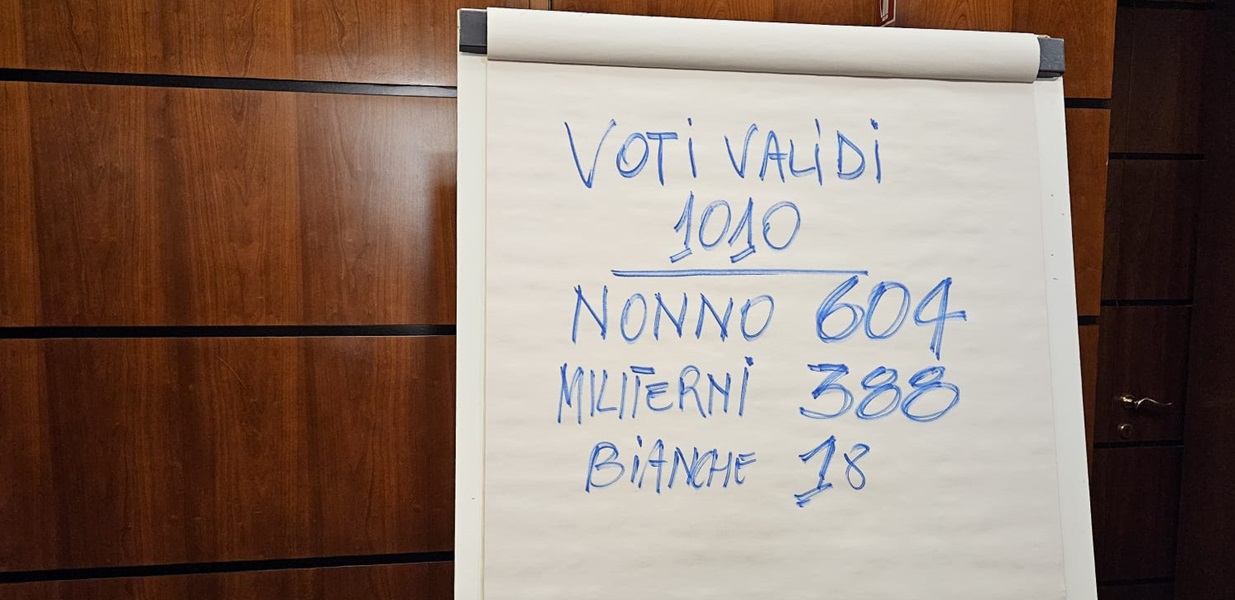 VOTI VALIDI
1010
NONNO 604
MILITERNI 388
BIANCHE 18